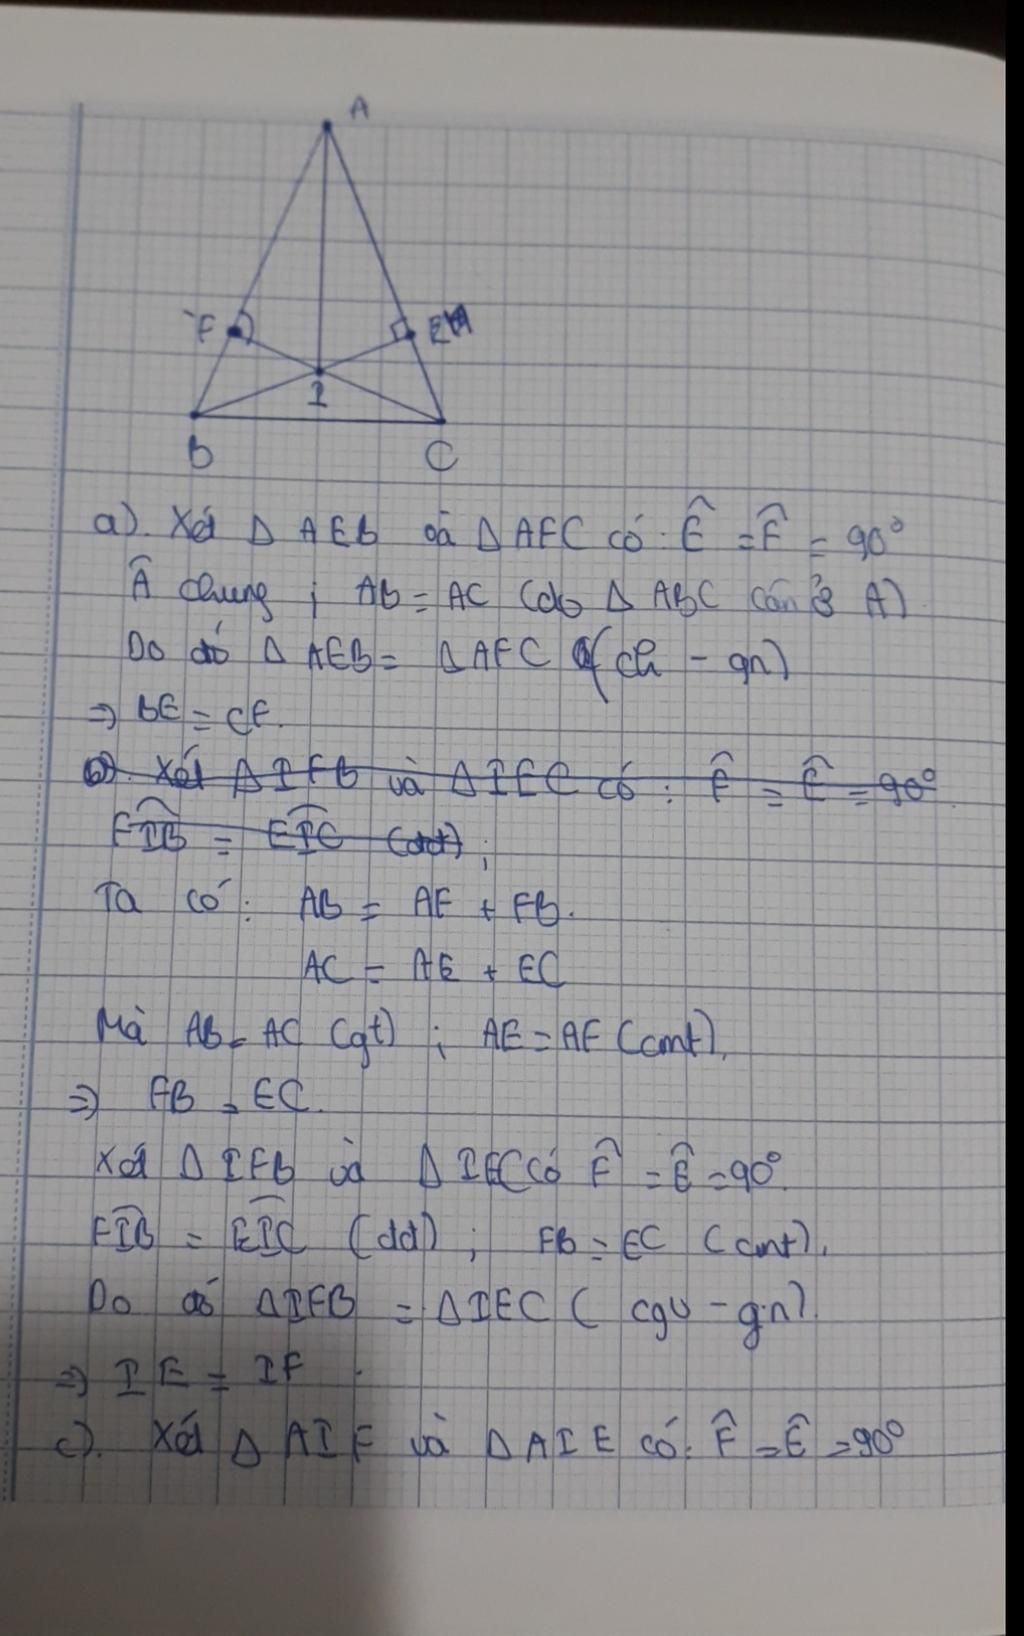 A
F
E
I
B
C
a). Xét Δ AEB và Δ AFC có: Ê = F̂ = 90°
Â chung ; AB = AC (do Δ ABC cân ở A)
Do đó Δ AEB = Δ AFC (ch - gn)
=> BE = CF.
b). Xét Δ IFB và Δ IEC có: F̂ = Ê = 90°
FIB = EIC (dd);
Ta có: AB = AF + FB.
AC = AE + EC
Mà AB = AC (gt) ; AE = AF (cmt).
=> FB = EC.
Xét Δ IFB và Δ IEC có F̂ = Ê = 90°.
FIB = EIC (dd) ; FB = EC (cmt).
Do đó Δ IFB = Δ IEC ( cgv - gn).
=> IE = IF.
c). Xét Δ AIF và Δ AIE có: F̂ = Ê = 90°